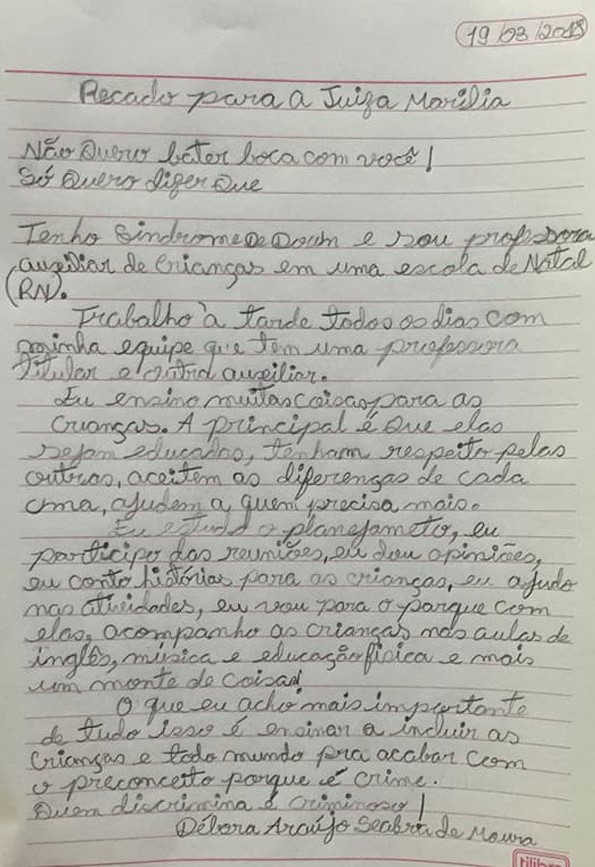 19/03/2018
Recado para a Juiza Marilia
Não Quero bater boca com você!
Só Quero dizer Que
Tenho Sindrome De Down e sou professora
auxiliar de Crianças em uma escola de Natal
(RN).
Trabalho à tarde todos os dias com
minha equipe que tem uma professora
titular e outra auxiliar.
Eu ensino muitas coisas para as
Crianças. A principal é Que elas
sejam educadas, tenham respeito pelas
outras, aceitem as diferenças de cada
uma, ajudem a quem precisa mais.
Eu estudo o planejameto, eu
participo das reuniões, eu dou opiniões,
eu conto histórias para as crianças, eu ajudo
nas atividades, eu vou para o parque com
elas, acompanho as crianças nas aulas de
inglês, música e educação física e mais
um monte de coisas!
O que eu acho mais importante
de tudo isso é ensinar a incluir as
Crianças e todo mundo pra acabar com
o preconceito porque é crime.
Quem discrimina é criminoso!
Débora Araújo Seabra de Moura
tilibra